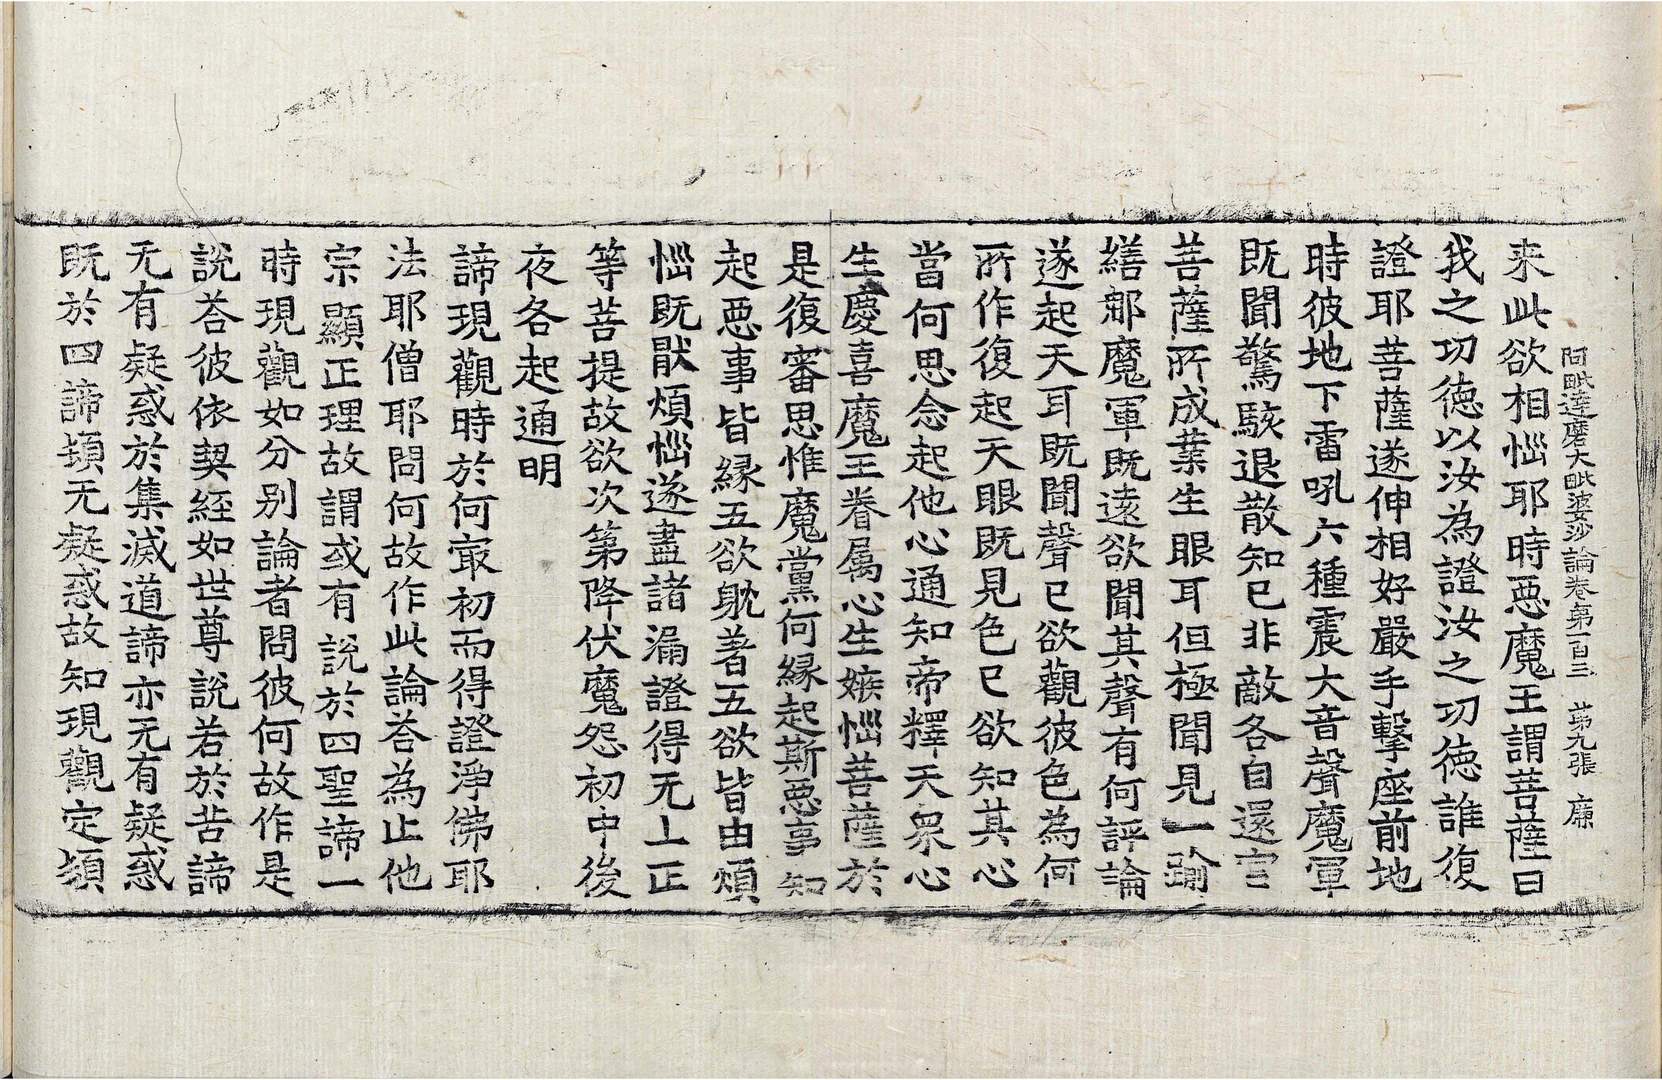 阿毗達磨大毗婆沙論卷第一百三 苐九張 廉
来此欲相惱耶時惡魔王謂菩薩曰
我之功徳以汝為證汝之功徳誰復
證耶菩薩遂伸相好嚴手擊座前地
時彼地下雷吼六種震大音聲魔軍
既聞驚駭退散知已非敵各自還宫
菩薩所成業生眼耳但極聞見一踰
繕那魔軍既遠欲聞其聲有何評論
遂起天耳既聞聲已欲觀彼色為何
所作復起天眼既見色已欲知其心
當何思念起他心通知帝釋天衆心
生慶喜魔王眷属心生嫉惱菩薩於
是復審思惟魔黨何縁起斯惡事知
起惡事皆縁五欲躭著五欲皆由煩
惱既猒煩惱遂盡諸漏證得无上正
等菩提故欲次第降伏魔怨初中後
夜各起通明
諦現觀時於何㝡初而得證淨佛耶
法耶僧耶問何故作此論荅為止他
宗顯正理故謂或有說於四聖諦一
時現觀如分别論者問彼何故作是
說荅彼依契經如世尊說若於苦諦
无有疑惑於集滅道諦亦无有疑惑
既於四諦頓无疑惑故知現觀定頓